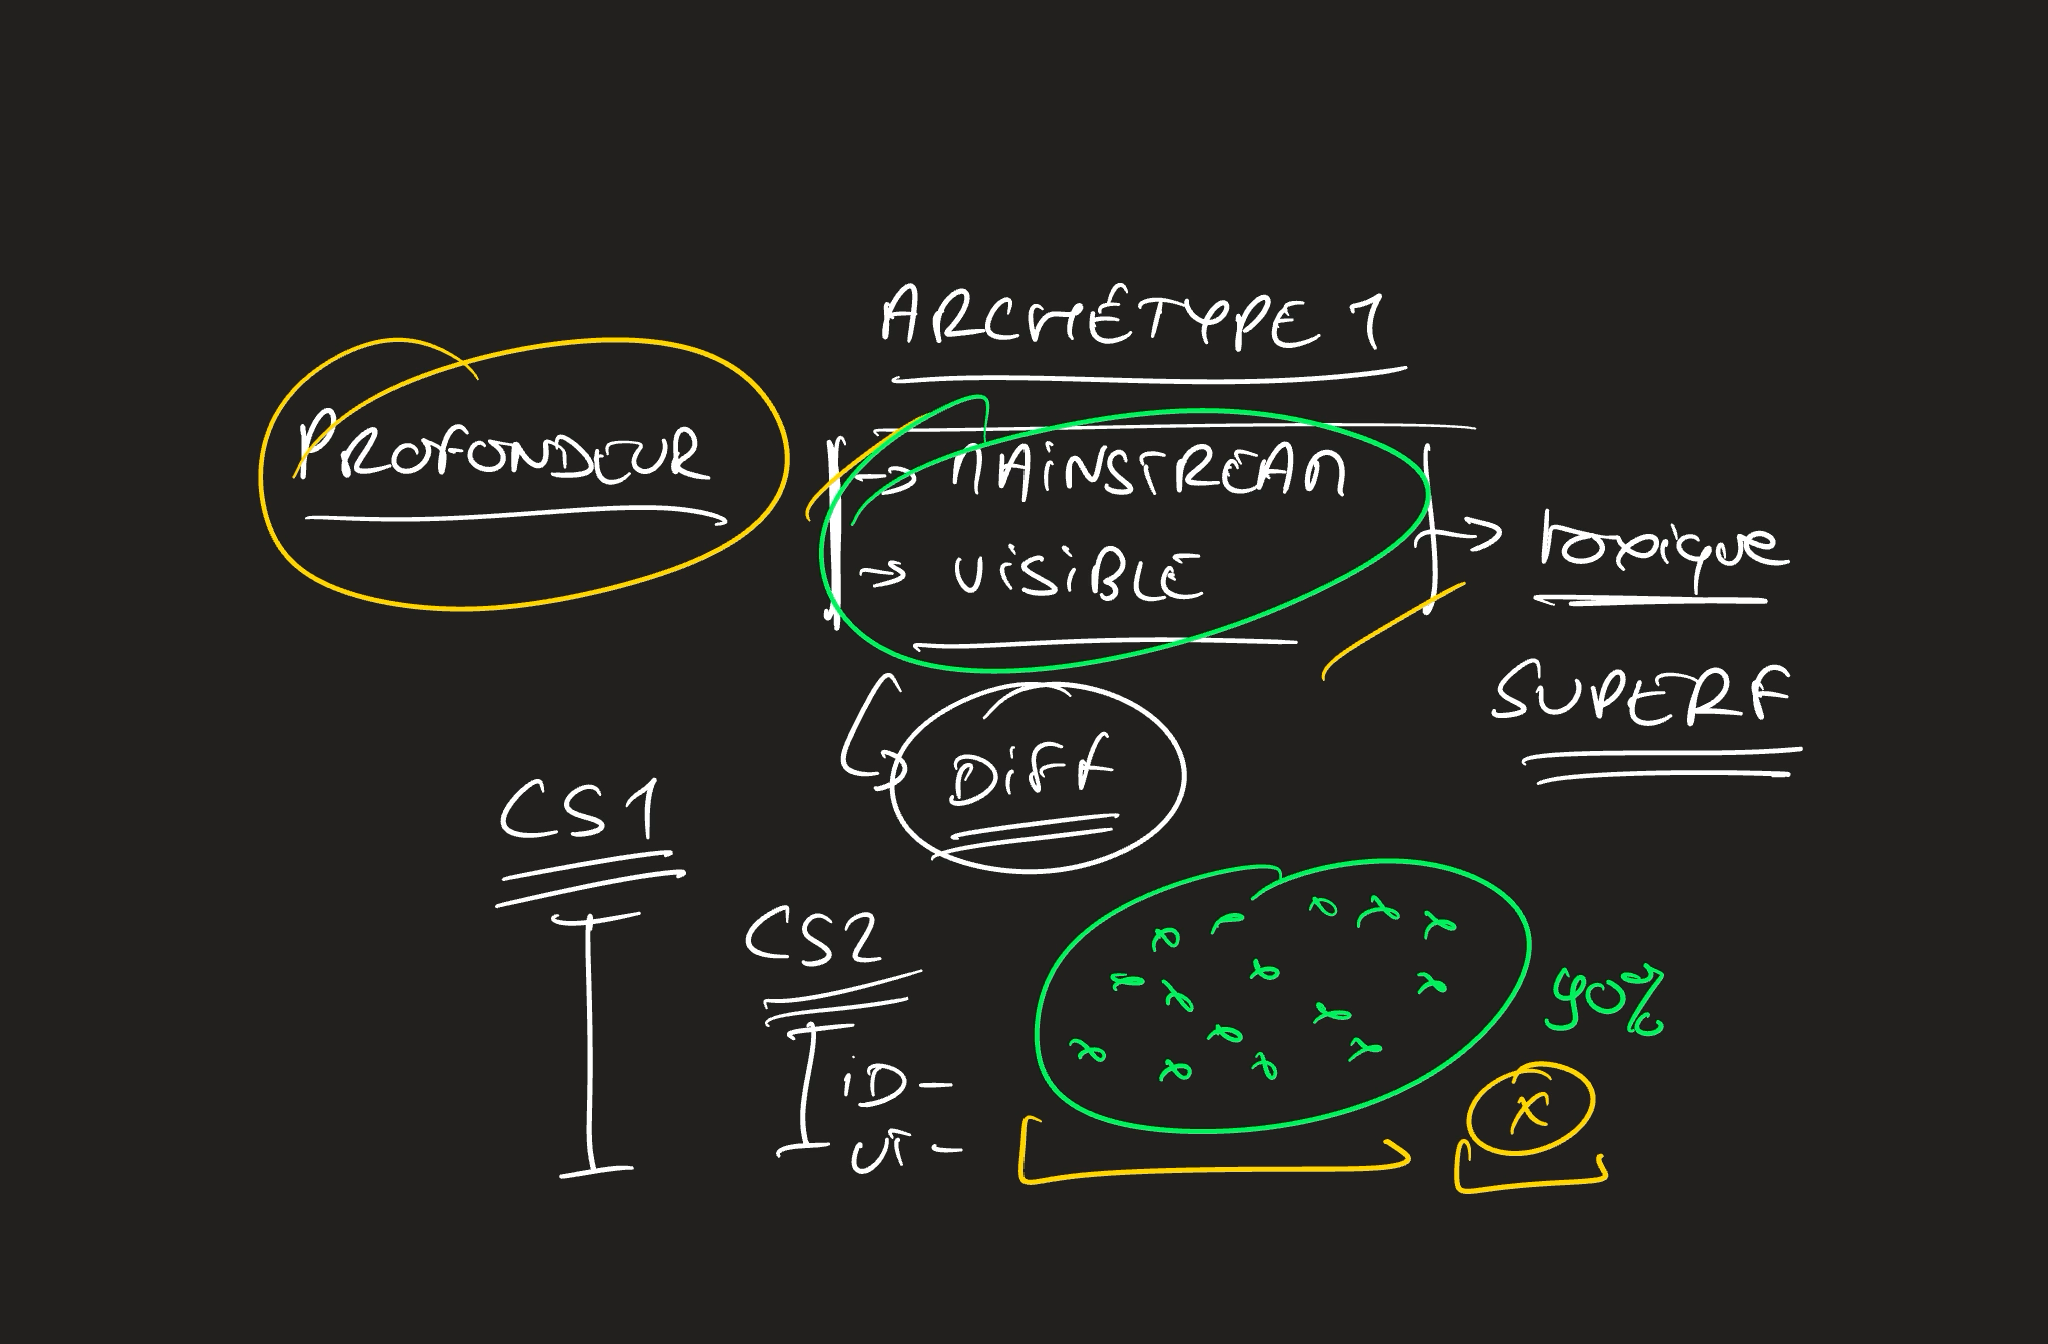 ARCHÉTYPE 1
PROFONDEUR
→ MAINSTREAM
→ VISIBLE
→ toxique
SUPERF
DIFF
CS1
CS2
iD -
Vi -
90%
x